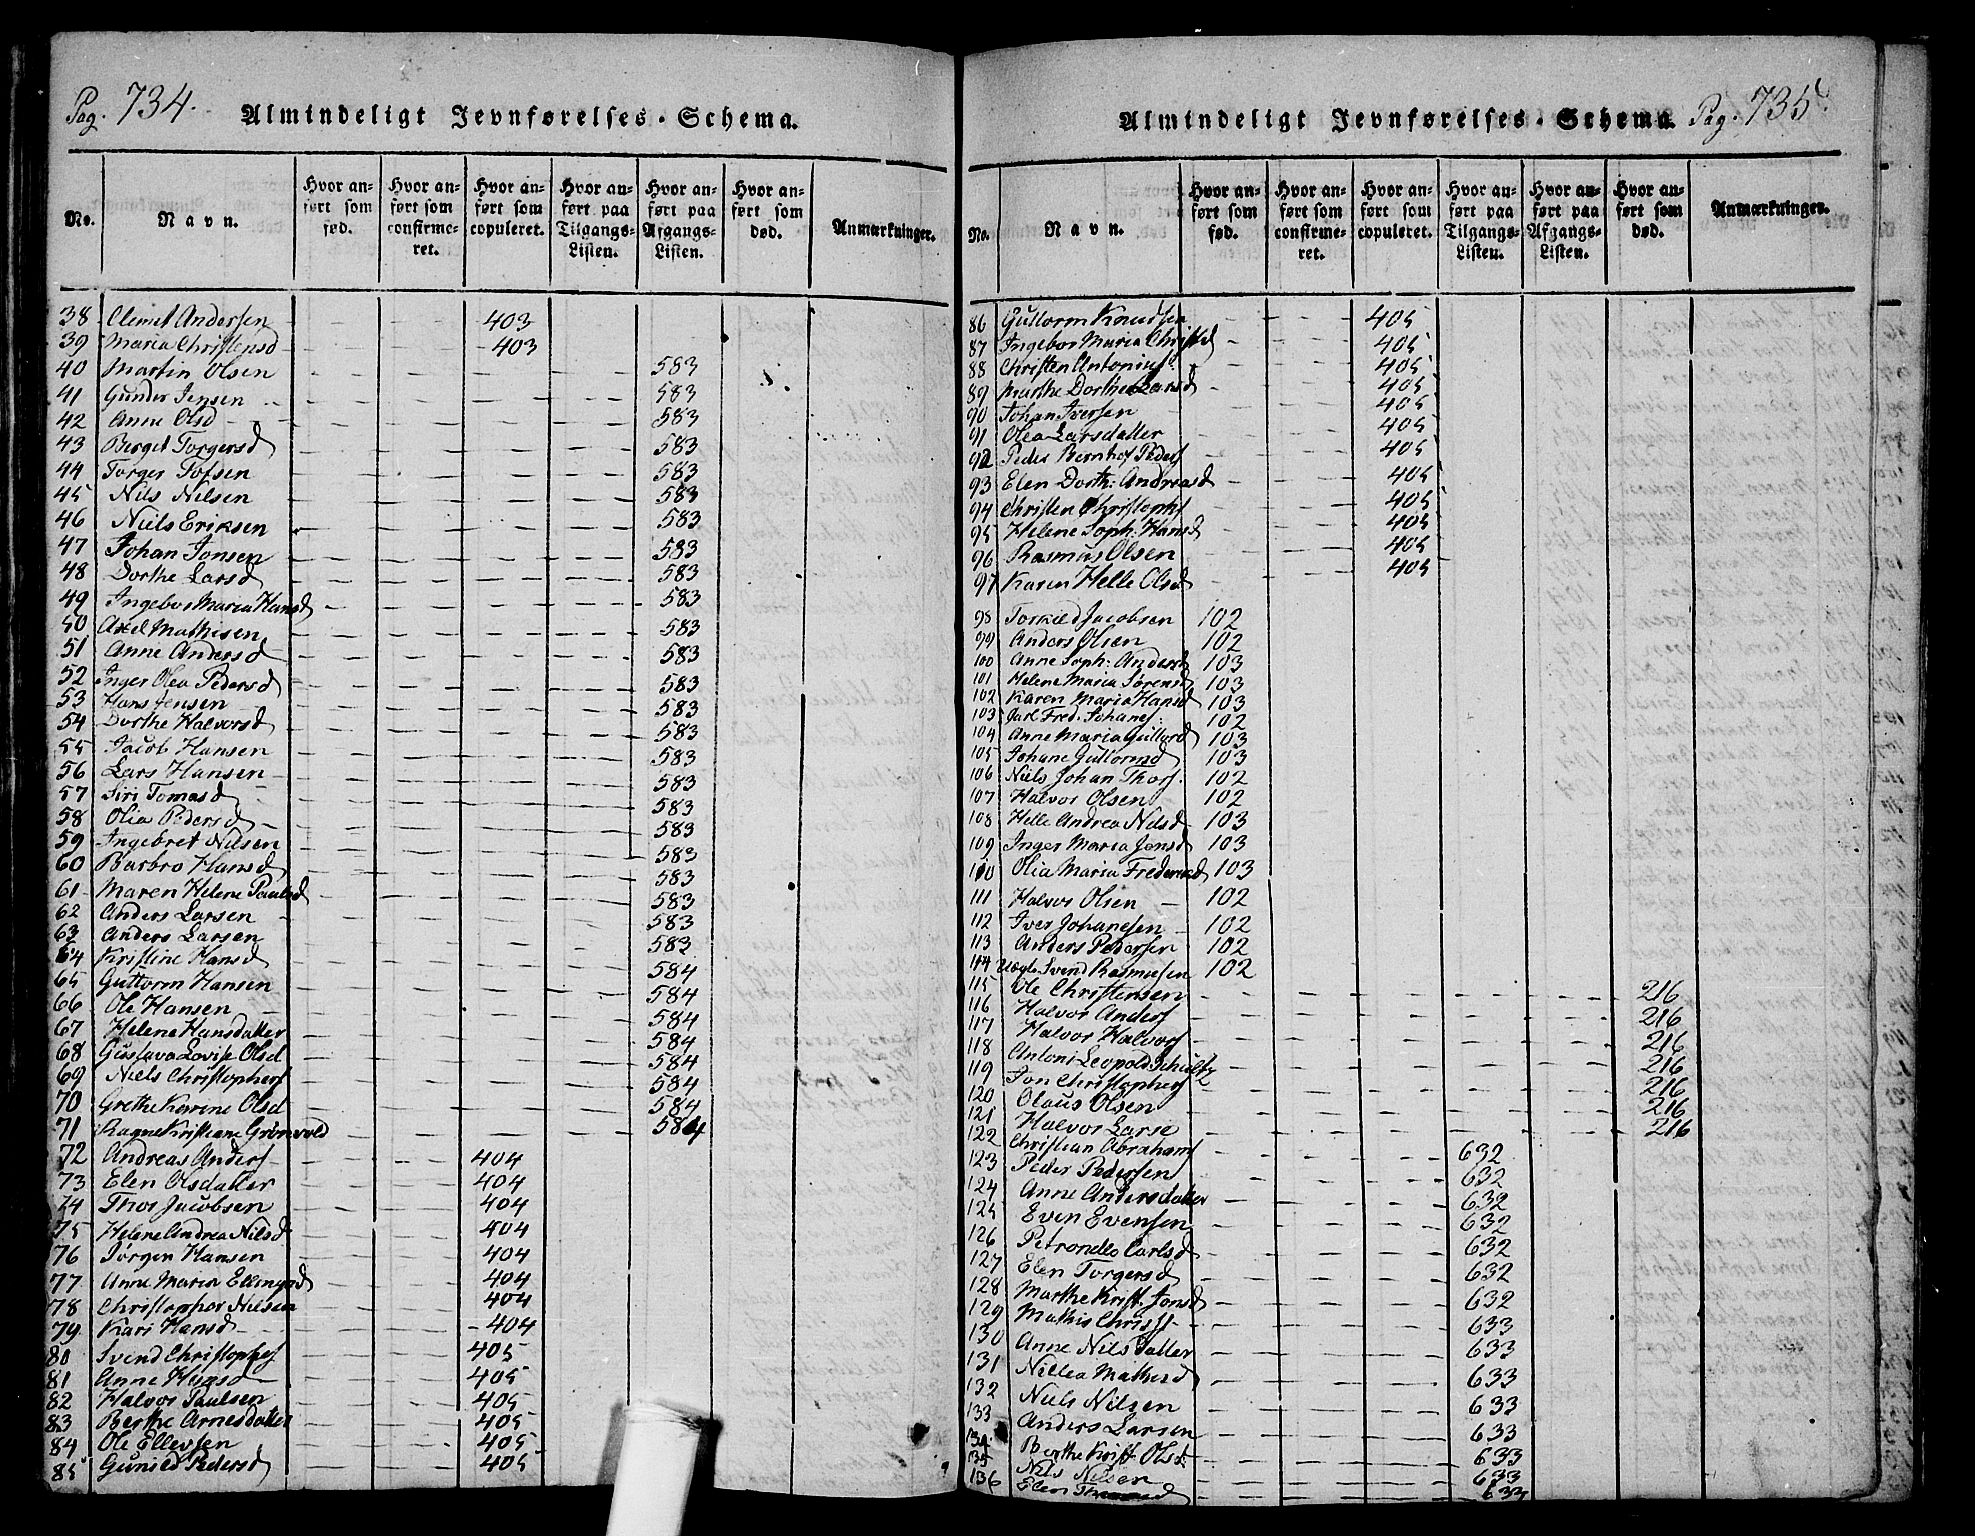 Pag. 734.
Almindeligt Jevnførelses-Schema.
No.
Navn.
Hvor anført som fød.
Hvor anført som confirmeret.
Hvor anført som copuleret.
Hvor anført paa Tilgangs-Listen.
Hvor anført paa Afgangs-Listen.
Hvor anført som død.
Anmærkninger.
38 Clemet Andersen 403
39 Maria Christensd 403
40 Martin Olsen 583
41 Gunder Jensen 583
42 Anne Olsd 583
43 Berget Torgersd 583
44 Torger Tofsen 583
45 Nils Nilsen 583
46 Niels Eriksen 583
47 Johan Jonsen 583
48 Dorthe Larsd 583
49 Ingebor Maria Hansd 583
50 Axel Mathisen 583
51 Anne Andersd 583
52 Inger Olea Pedersd 583
53 Hans Jensen 583
54 Dorthe Halvorsd 583
55 Jacob Hansen 583
56 Lars Hansen 583
57 Siri Tomasd 583
58 Olia Pedersd 583
59 Ingebret Nilsen 583
60 Barbro Hansd 583
61 Maren Helene Paulsd 583
62 Anders Larsen 583
63 Anders Larsen 583
64 Kristine Hansd 584
65 Guttorm Hansen 584
66 Ole Hansen 584
67 Helene Hansdatter 584
68 Gustava Lovise Olsd 584
69 Niels Christophers 584
70 Grethe Karine Olsd 584
71 Ragne Kristiane Grønvold 584
72 Andreas Anders 404
73 Elen Olsdatter 404
74 Thor Jacobsen 404
75 Helene Andrea Nilsd 404
76 Jørgen Hansen 404
77 Anne Maria Ellingsd 404
78 Christopher Nilsen 404
79 Kari Hansd 404
80 Svend Christophes 405
81 Anne Hansd 405
82 Halvor Paulsen 405
83 Berthe Arnesdatter 405
84 Ole Ellevsen 405
85 Gunild Pedersd 405
Almindeligt Jevnførelses-Schema. Pag. 735
No.
Navn.
Hvor anført som fød.
Hvor anført som confirmeret.
Hvor anført som copuleret.
Hvor anført paa Tilgangs-Listen.
Hvor anført paa Afgangs-Listen.
Hvor anført som død.
Anmærkninger.
86 Guttorm Knudsen 405
87 Ingebor Maria Christd 405
88 Christen Antonius 405
89 Marthe Dorthe Larsd 405
90 Johan Iversen 405
91 Olea Larsdatter 405
92 Peder Bernhof Peders 405
93 Elen Dorth: Andreasd 405
94 Christen Christophs 405
95 Helene Soph: Hansd 405
96 Rasmus Olsen 405
97 Karen Helle Olsd 405
98 Torkild Jacobsen 102
99 Anders Olsen 102
100 Anne Soph: Andersd 103
101 Helene Maria Sørensd 103
102 Karen Maria Hansd 103
103 Carl Fred. Johanes 102
104 Anne Maria Guttorsd 103
105 Johane Guttormd 103
106 Niels Johan Thors. 102
107 Halvor Olsen 102
108 Helle Andrea Nilsd 103
109 Inger Maria Jensd 103
110 Olia Maria Frederiksd 103
111 Halvor Olsen 102
112 Iver Johanesen 102
113 Anders Pedersen 102
114 Svend Rasmusen 102
115 Ole Christensen 216
116 Halvor Anders 216
117 Halvor Halvors 216
118 Antoni Leopold Schultz 216
119 Jon Christophers 216
120 Olaus Olsen 216
121 Halvor Larse 216
122 Christian Abraham 632
123 Peder Pedersen 632
124 Anne Andersdatter 632
125 Even Evensen 632
126 Petronelle Carlsd 632
127 Elen Torgersd 632
128 Marthe Krist. Jonsd 632
129 Mathis Christs 633
130 Anne Nils Datter 633
131 Nillea Mathisd 633
132 Niels Nilsen 633
133 Anders Larsen 633
134 Berthe Krist Olsd 633
135 Nils Nilsen 633
136 Elen 633